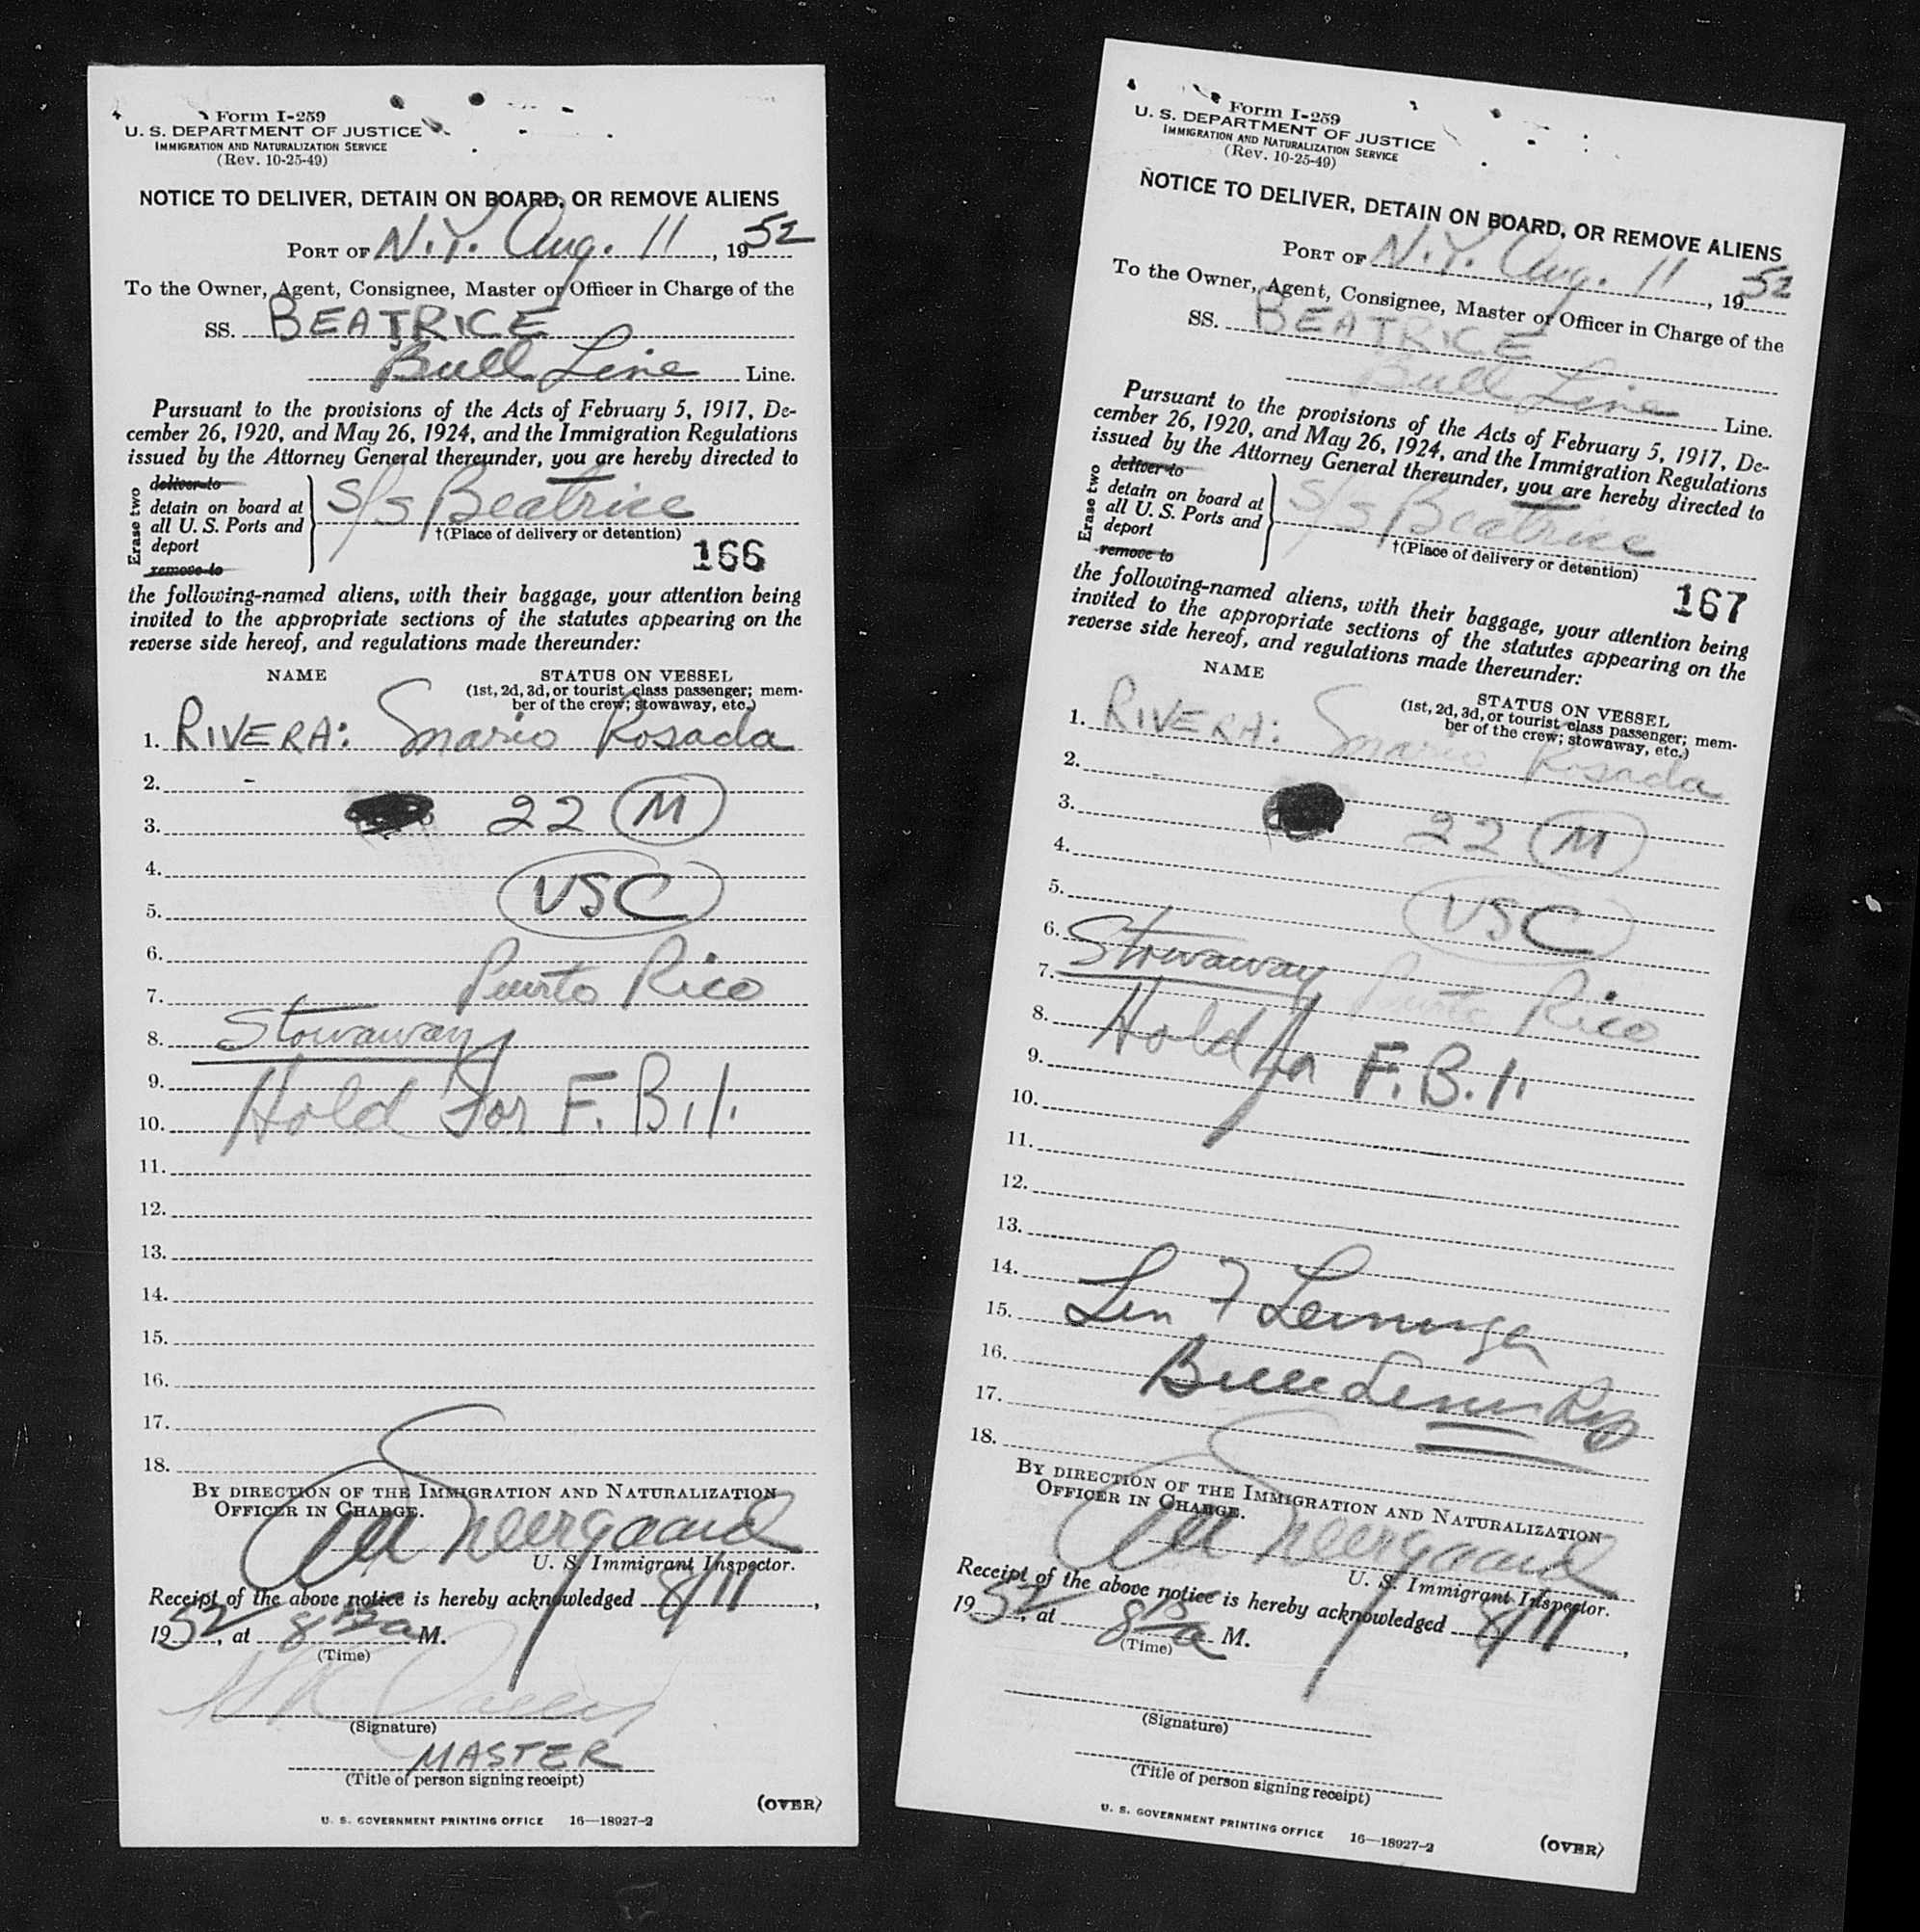 Form I-259
U. S. DEPARTMENT OF JUSTICE
IMMIGRATION AND NATURALIZATION SERVICE
(Rev. 10-25-49)
NOTICE TO DELIVER, DETAIN ON BOARD, OR REMOVE ALIENS
PORT OF N.Y. Aug. 11, 1952
To the Owner, Agent, Consignee, Master or Officer in Charge of the
SS. BEATRICE
Bull Line Line.
Pursuant to the provisions of the Acts of February 5, 1917, De-
cember 26, 1920, and May 26, 1924, and the Immigration Regulations
issued by the Attorney General thereunder, you are hereby directed to
Erase two
deliver to
detain on board at
all U. S. Ports and
deport
remove to
S/S Beatrice
†(Place of delivery or detention)
166
the following-named aliens, with their baggage, your attention being
invited to the appropriate sections of the statutes appearing on the
reverse side hereof, and regulations made thereunder:
NAME
STATUS ON VESSEL
(1st, 2d, 3d, or tourist class passenger; mem-
ber of the crew; stowaway, etc.)
1. RIVERA: Rosada
2.
3. 22 M
4.
5. USC
6.
7. Puerto Rico
8. Stowaway
9.
10. Hold For F.B.I.
11.
12.
13.
14.
15.
16.
17.
18.
BY DIRECTION OF THE IMMIGRATION AND NATURALIZATION
OFFICER IN CHARGE.
Neergaard
U. S. Immigrant Inspector.
Receipt of the above notice is hereby acknowledged 8/11,
1952, at 8 a M.
(Time)
(Signature)
MASTER
(Title of person signing receipt)
(OVER)
U. S. GOVERNMENT PRINTING OFFICE 16—18927-2
Form I-259
U. S. DEPARTMENT OF JUSTICE
IMMIGRATION AND NATURALIZATION SERVICE
(Rev. 10-25-49)
NOTICE TO DELIVER, DETAIN ON BOARD, OR REMOVE ALIENS
PORT OF N.Y. Aug. 11, 1952
To the Owner, Agent, Consignee, Master or Officer in Charge of the
SS. BEATRICE
Bull Line Line.
Pursuant to the provisions of the Acts of February 5, 1917, De-
cember 26, 1920, and May 26, 1924, and the Immigration Regulations
issued by the Attorney General thereunder, you are hereby directed to
Erase two
deliver to
detain on board at
all U. S. Ports and
deport
remove to
S/S Beatrice
†(Place of delivery or detention)
167
the following-named aliens, with their baggage, your attention being
invited to the appropriate sections of the statutes appearing on the
reverse side hereof, and regulations made thereunder:
NAME
STATUS ON VESSEL
(1st, 2d, 3d, or tourist class passenger; mem-
ber of the crew; stowaway, etc.)
1. RIVERA: Rosada
2.
3. 22 M
4.
5. USC
6. Stowaway
7. Puerto Rico
8. Hold for F.B.I.
9.
10.
11.
12.
13.
14.
15.
16.
17.
18.
BY DIRECTION OF THE IMMIGRATION AND NATURALIZATION
OFFICER IN CHARGE.
Neergaard
U. S. Immigrant Inspector.
Receipt of the above notice is hereby acknowledged 8/11,
1952, at 8 a M.
(Time)
(Signature)
(Title of person signing receipt)
(OVER)
U. S. GOVERNMENT PRINTING OFFICE 16—18927-2